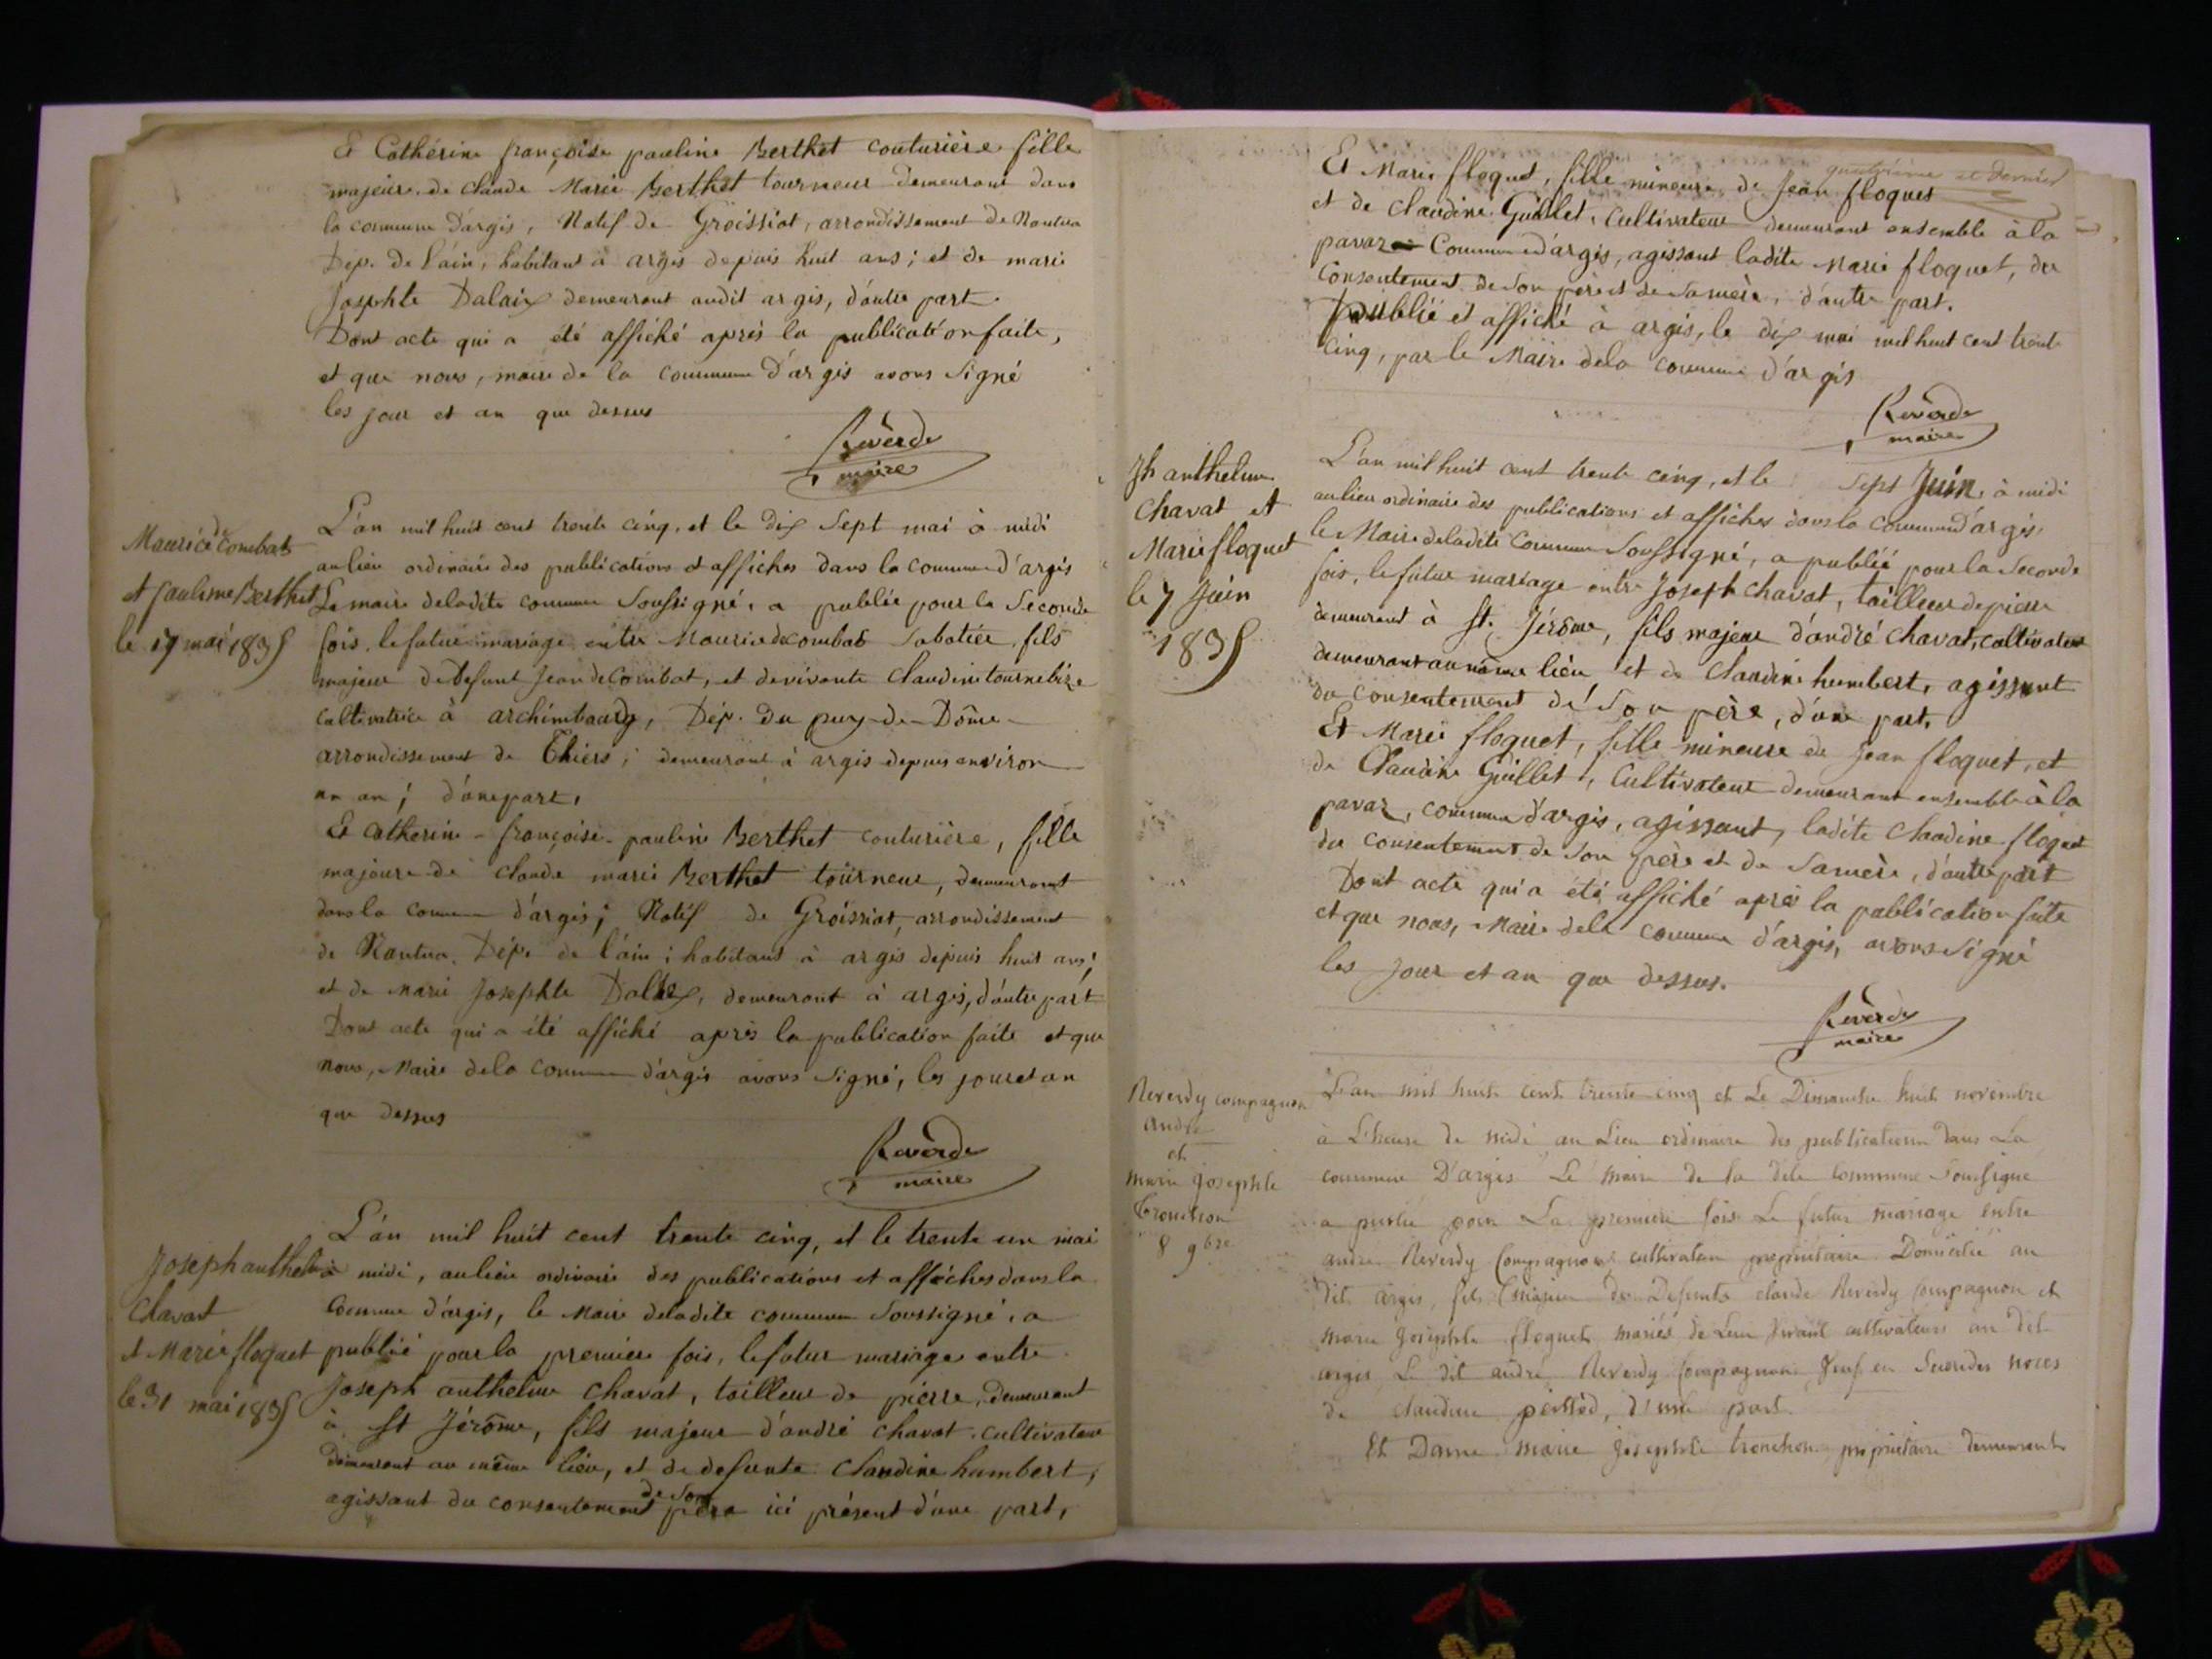 Et Cathérine françoise pauline Berthet couturière fille
majeure de Claude Marie Berthet tourneur demeurant dans
la commune d'argis, Natif de Groissiat, arrondissement de Nantua
Dép. de l'ain, habitant à argis depuis huit ans; et de marie
Josephte Dalaix demeurant audit argis, d'autre part.
Dont acte qui a été affiché après la publication faite,
et que nous, maire de la commune d'argis avons signé
les jour et an que dessus
Reverdy
maire
Maurice decombat
et pauline Berthet
le 17 mai 1835
L'an mil huit cent trente cinq, et le dix sept mai à midi
au lieu ordinaire des publications et affiches dans la commune d'argis
Le maire de ladite commune soussigné, a publié pour la seconde
fois, le futur mariage entre Maurice decombat sabotier, fils
majeur de defunt Jean decombat, et de vivante Claudine tournebize
cultivatrice à archimbaudy, Dép. du puy-de-Dôme
arrondissement de Thiers; demeurant à argis depuis environ
un an; d'une part,
Et Catherine-françoise-pauline Berthet couturière, fille
majeure de Claude marie Berthet tourneur, demeurant
dans la commune d'argis; Natif de Groissiat, arrondissement
de Nantua. Dép. de l'ain; habitant à argis depuis huit ans;
et de marie Josephte Dalaix, demeurant à argis, d'autre part
Dont acte qui a été affiché après la publication faite et que
nous, Maire de la commune d'argis avons signé, les jour et an
que dessus
Reverdy
maire
Joseph anthelme
Chavat
et Marie floquet
le 31 mai 1835
L'an mil huit cent trente cinq, et le trente un mai
à midi, au lieu ordinaire des publications et affiches dans la
Commune d'argis, le Maire de ladite commune soussigné, a
publié pour la première fois, le futur mariage entre
Joseph anthelme Chavat, tailleur de pierre, demeurant
à St Jérôme, fils majeur d'andré Chavat, cultivateur
demeurant au même lieu, et de defunte Claudine humbert,
agissant du consentement de son père ici présent d'une part,
quatrième et dernier
Et Marie floquet, fille mineure de Jean floquet
et de Claudine Guillet, Cultivateur demeurant ensemble à la
pavaz Commune d'argis, agissant ladite Marie floquet, du
consentement de son père et de sa mère, d'autre part.
Publié et affiché à argis, le dix mai mil huit cent trente
cinq, par le Maire de la commune d'argis
Reverdy
maire
Jh anthelme
Chavat et
Marie floquet
le 7 Juin
1835
L'an mil huit cent trente cinq, et le sept Juin, à midi
au lieu ordinaire des publications et affiches dans la commune d'argis,
le Maire de ladite Commune Soussigné, a publié pour la seconde
fois, le futur mariage entre Joseph Chavat, tailleur de pierre
demeurant à St. Jérôme, fils majeur d'andré Chavat, cultivateur
demeurant au même lieu et de Claudine humbert, agissant
du consentement de son père, d'une part,
Et Marie floquet, fille mineure de Jean floquet, et
de Claudine Guillet, Cultivateur demeurant ensemble à la
pavaz, commune d'argis, agissant, ladite Claudine floquet
du consentement de son père et de sa mère, d'autre part
Dont acte qui a été affiché après la publication faite
et que nous, Maire de la commune d'argis, avons signé
les jour et an que dessus.
Reverdy
maire
Reverdy compagnon
andré
et
marie Josephte
tronchon
8 9bre
L'an mil huit cent trente cinq et Le Dimanche huit novembre
à L'heure de midi au Lieu ordinaire des publications dans La
commune D'argis Le maire de la dite commune soussigné
a publié pour La première fois Le futur mariage entre
andré Reverdy Compagnon cultivateur propriétaire Domicilié au
dit argis, fils majeur de Defunts claude Reverdy Compagnon et
marie Josephte floquet mariés de Leur vivant cultivateurs au dit
argis Le dit andré Reverdy Compagnon Veuf en Secondes noces
de claudine d'une part
Et Dame marie Josephte tronchon propriétaire demeurant